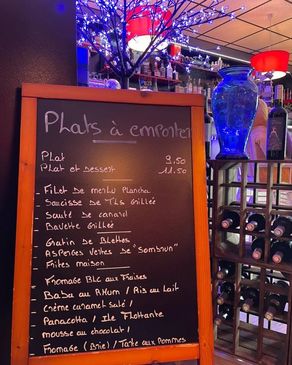 Plats à emporter
Plat 9.50
Plat et dessert 11.50
Filet de merlu Plancha
Saucisse de Tls Grillée
Sauté de canard
Bavette Grillée
Gratin de Blettes
Asperges vertes de "Sombrun"
Frites maison
Fromage Blc aux Fraises
Baba au Rhum / Ris au lait
Crème caramel salé /
Panacotta / Ile Flottante
mousse au chocolat /
Fromage (Brie) / Tarte aux Pommes